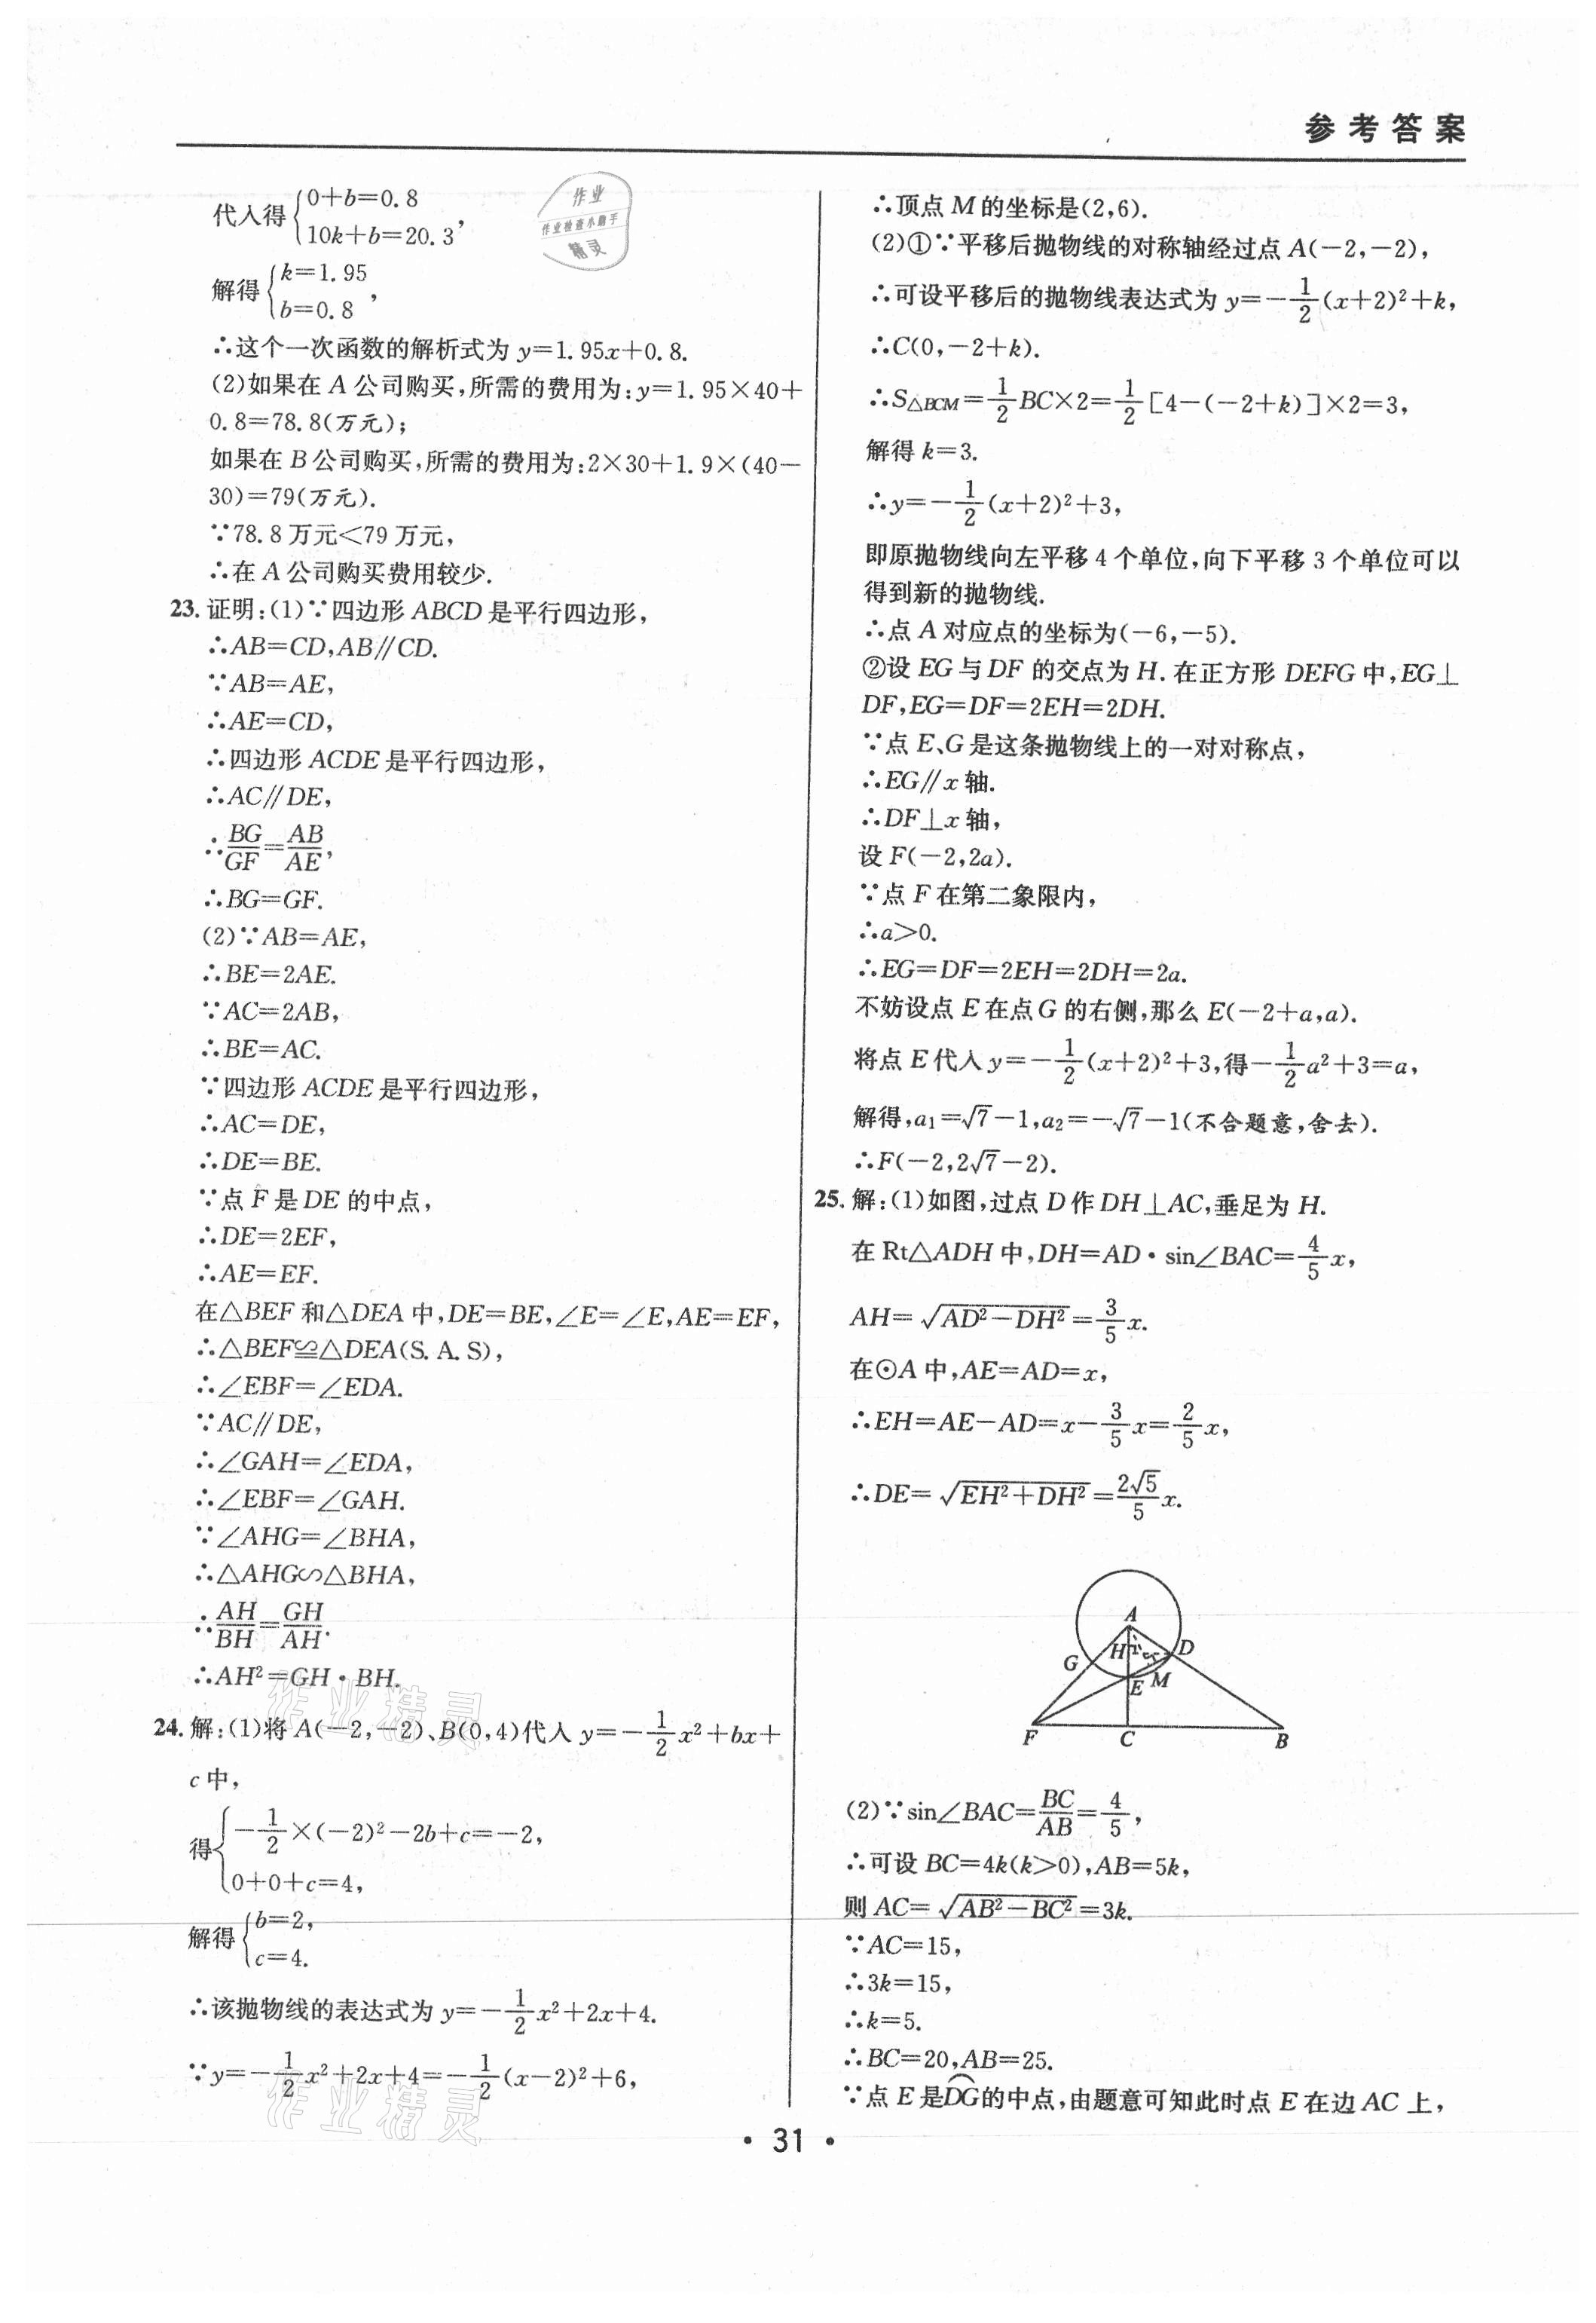 参考答案
代入得{0+b=0.8
10k+b=20.3,
解得{k=1.95
b=0.8,
∴这个一次函数的解析式为y=1.95x+0.8.
(2)如果在A公司购买,所需的费用为:y=1.95×40+
0.8=78.8(万元);
如果在B公司购买,所需的费用为:2×30+1.9×(40-
30)=79(万元).
∵78.8万元<79万元,
∴在A公司购买费用较少.
23.证明:(1)∵四边形ABCD是平行四边形,
∴AB=CD,AB∥CD.
∵AB=AE,
∴AE=CD,
∴四边形ACDE是平行四边形,
∴AC∥DE,
∴BG/GF=AB/AE,
∴BG=GF.
(2)∵AB=AE,
∴BE=2AE.
∵AC=2AB,
∴BE=AC.
∵四边形ACDE是平行四边形,
∴AC=DE,
∴DE=BE.
∵点F是DE的中点,
∴DE=2EF,
∴AE=EF.
在△BEF和△DEA中,DE=BE,∠E=∠E,AE=EF,
∴△BEF≌△DEA(S.A.S),
∴∠EBF=∠EDA.
∵AC∥DE,
∴∠GAH=∠EDA,
∴∠EBF=∠GAH.
∵∠AHG=∠BHA,
∴△AHG∽△BHA,
∴AH/BH=GH/AH.
∴AH²=GH·BH.
24.解:(1)将A(-2,-2)、B(0,4)代入y=-1/2x²+bx+
c中,
得{-1/2×(-2)²-2b+c=-2,
0+0+c=4,
解得{b=2,
c=4.
∴该抛物线的表达式为y=-1/2x²+2x+4.
∵y=-1/2x²+2x+4=-1/2(x-2)²+6,
∴顶点M的坐标是(2,6).
(2)①∵平移后抛物线的对称轴经过点A(-2,-2),
∴可设平移后的抛物线表达式为y=-1/2(x+2)²+k,
∴C(0,-2+k).
∴S△BCM=1/2BC×2=1/2[4-(-2+k)]×2=3,
解得k=3.
∴y=-1/2(x+2)²+3,
即原抛物线向左平移4个单位,向下平移3个单位可以
得到新的抛物线.
∴点A对应点的坐标为(-6,-5).
②设EG与DF的交点为H.在正方形DEFG中,EG⊥
DF,EG=DF=2EH=2DH.
∵点E、G是这条抛物线上的一对对称点,
∴EG∥x轴.
∴DF⊥x轴,
设F(-2,2a).
∵点F在第二象限内,
∴a>0.
∴EG=DF=2EH=2DH=2a.
不妨设点E在点G的右侧,那么E(-2+a,a).
将点E代入y=-1/2(x+2)²+3,得-1/2a²+3=a,
解得,a₁=√7-1,a₂=-√7-1(不合题意,舍去).
∴F(-2,2√7-2).
25.解:(1)如图,过点D作DH⊥AC,垂足为H.
在Rt△ADH中,DH=AD·sin∠BAC=4/5x,
AH=√(AD²-DH²)=3/5x.
在⊙A中,AE=AD=x,
∴EH=AE-AD=x-3/5x=2/5x,
∴DE=√(EH²+DH²)=2√5/5x.
A
H
D
G
E
M
F
C
B
(2)∵sin∠BAC=BC/AB=4/5,
∴可设BC=4k(k>0),AB=5k,
则AC=√(AB²-BC²)=3k.
∵AC=15,
∴3k=15,
∴k=5.
∴BC=20,AB=25.
∵点E是DG⌒的中点,由题意可知此时点E在边AC上,
·31·
作业
作业检查小助手
精灵
作业精灵
作业精灵